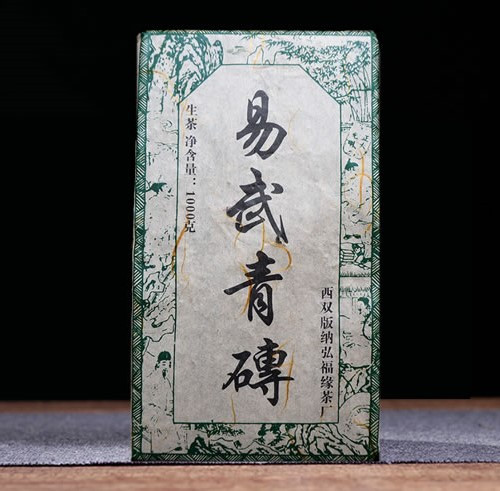 易武青磚
生茶 净含量：1000克
西双版纳弘福缘茶厂